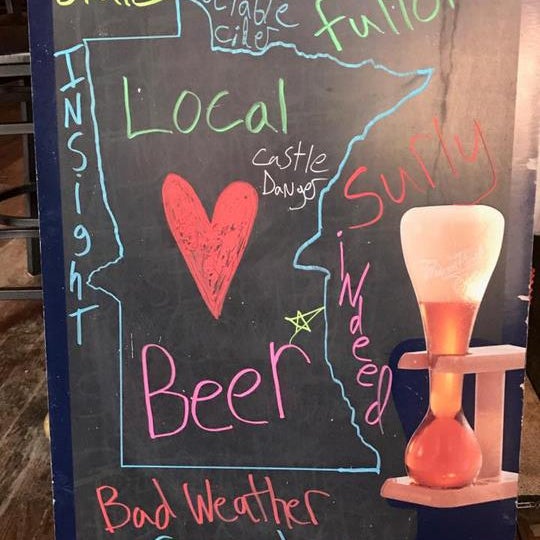 ciable
cider
Fulton
INSighT
Local
castle
Danger
Surly
iNdeed
Beer
Bad Weather